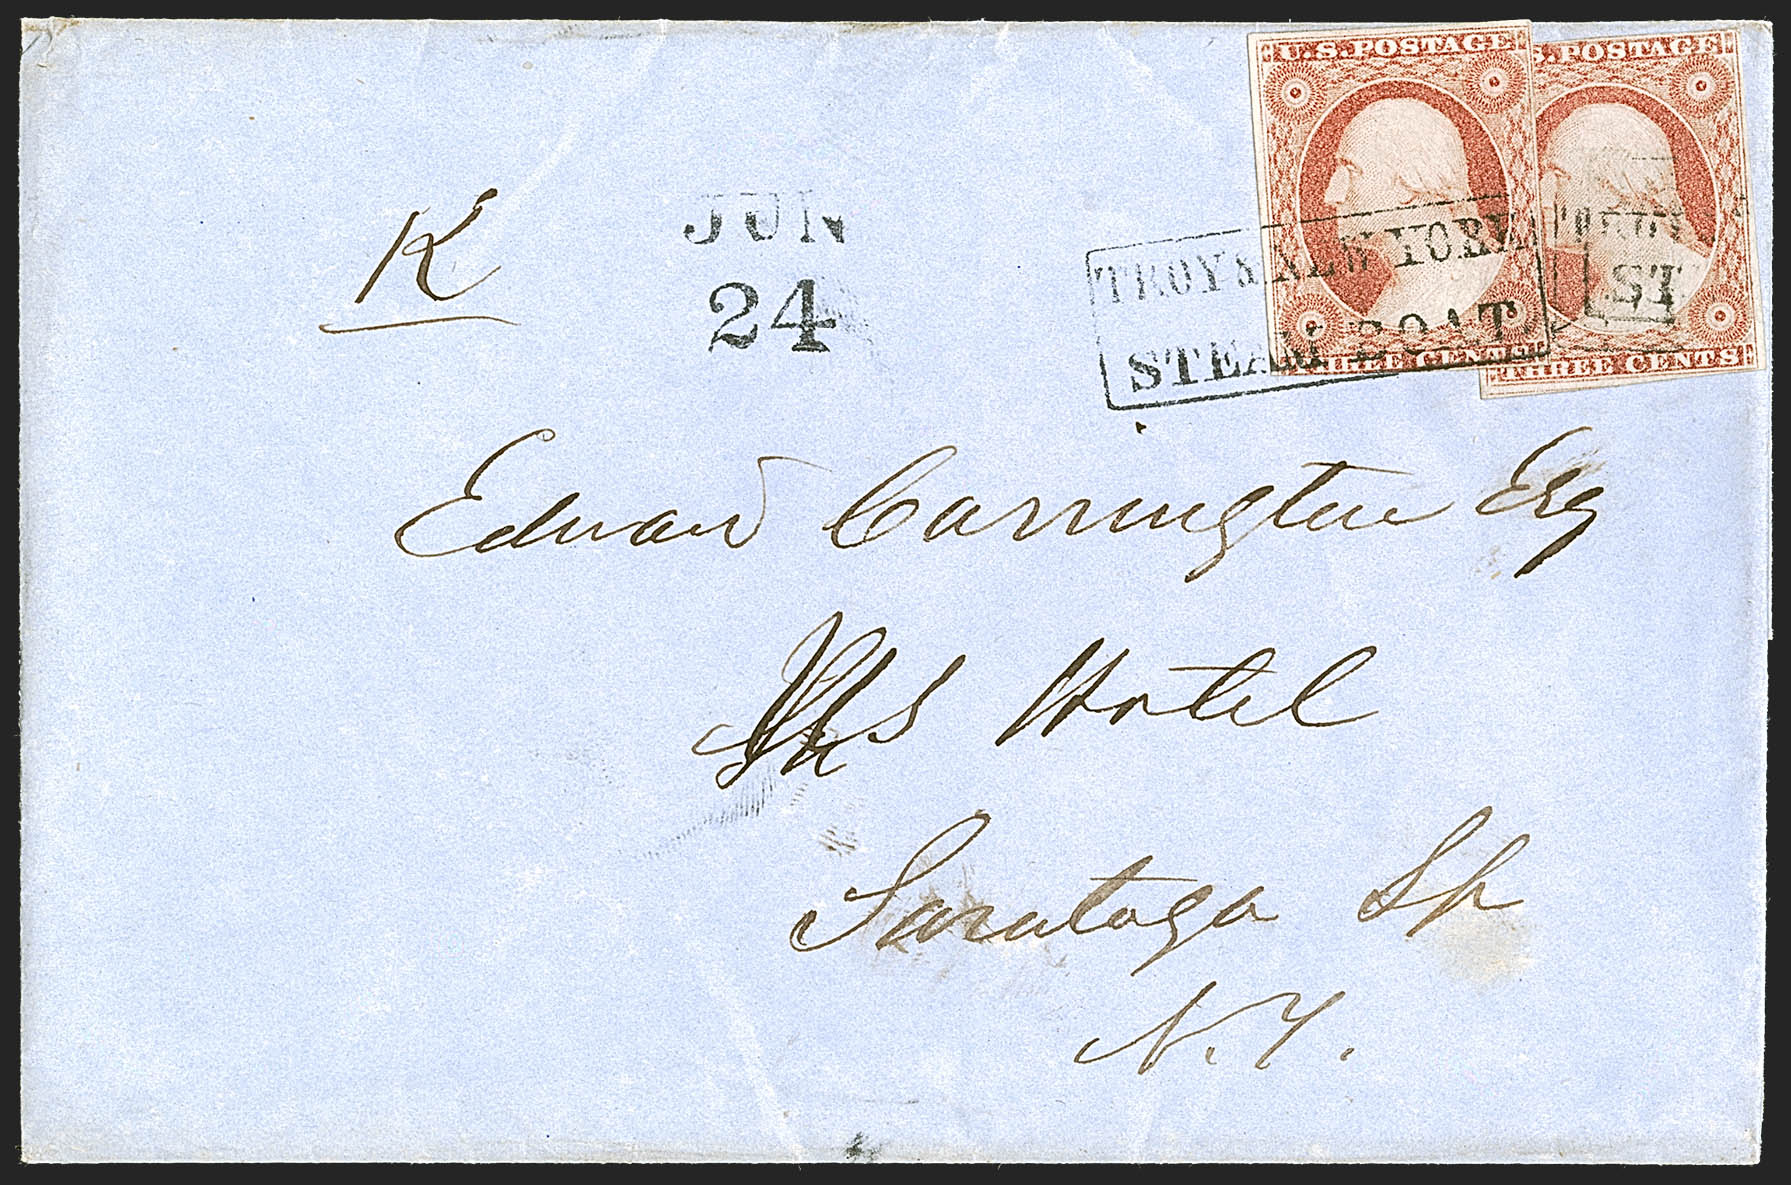 U.S. POSTAGE
S. POSTAGE
K
JUN
24
TROY & NEW YORK
STEAM BOAT
ST
THREE CENTS
THREE CENTS
Edward Carrington Esq
Hotel
Saratoga Sp
N.Y.